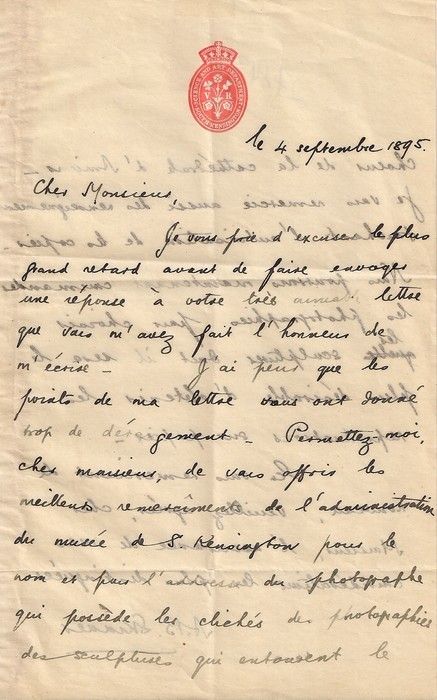 SCIENCE AND ART DEPARTMENT
V R
SOUTH KENSINGTON
le 4 septembre 1895.
Cher Monsieur,
Je vous prie d'excuser le plus
grand retard avant de faire envoyer
une réponse à votre très aimable lettre
que vous m'avez fait l'honneur de
m'écrire – J'ai peur que les
points de ma lettre vous ont donné
trop de dérogement – Permettez-moi,
cher monsieur, de vous offrir les
meilleurs remerciments de l'administration
du musée de S. Kensington pour le
nom et pour l'addresse du photographe
qui possède les clichés des photographies
des sculptures qui entourent le